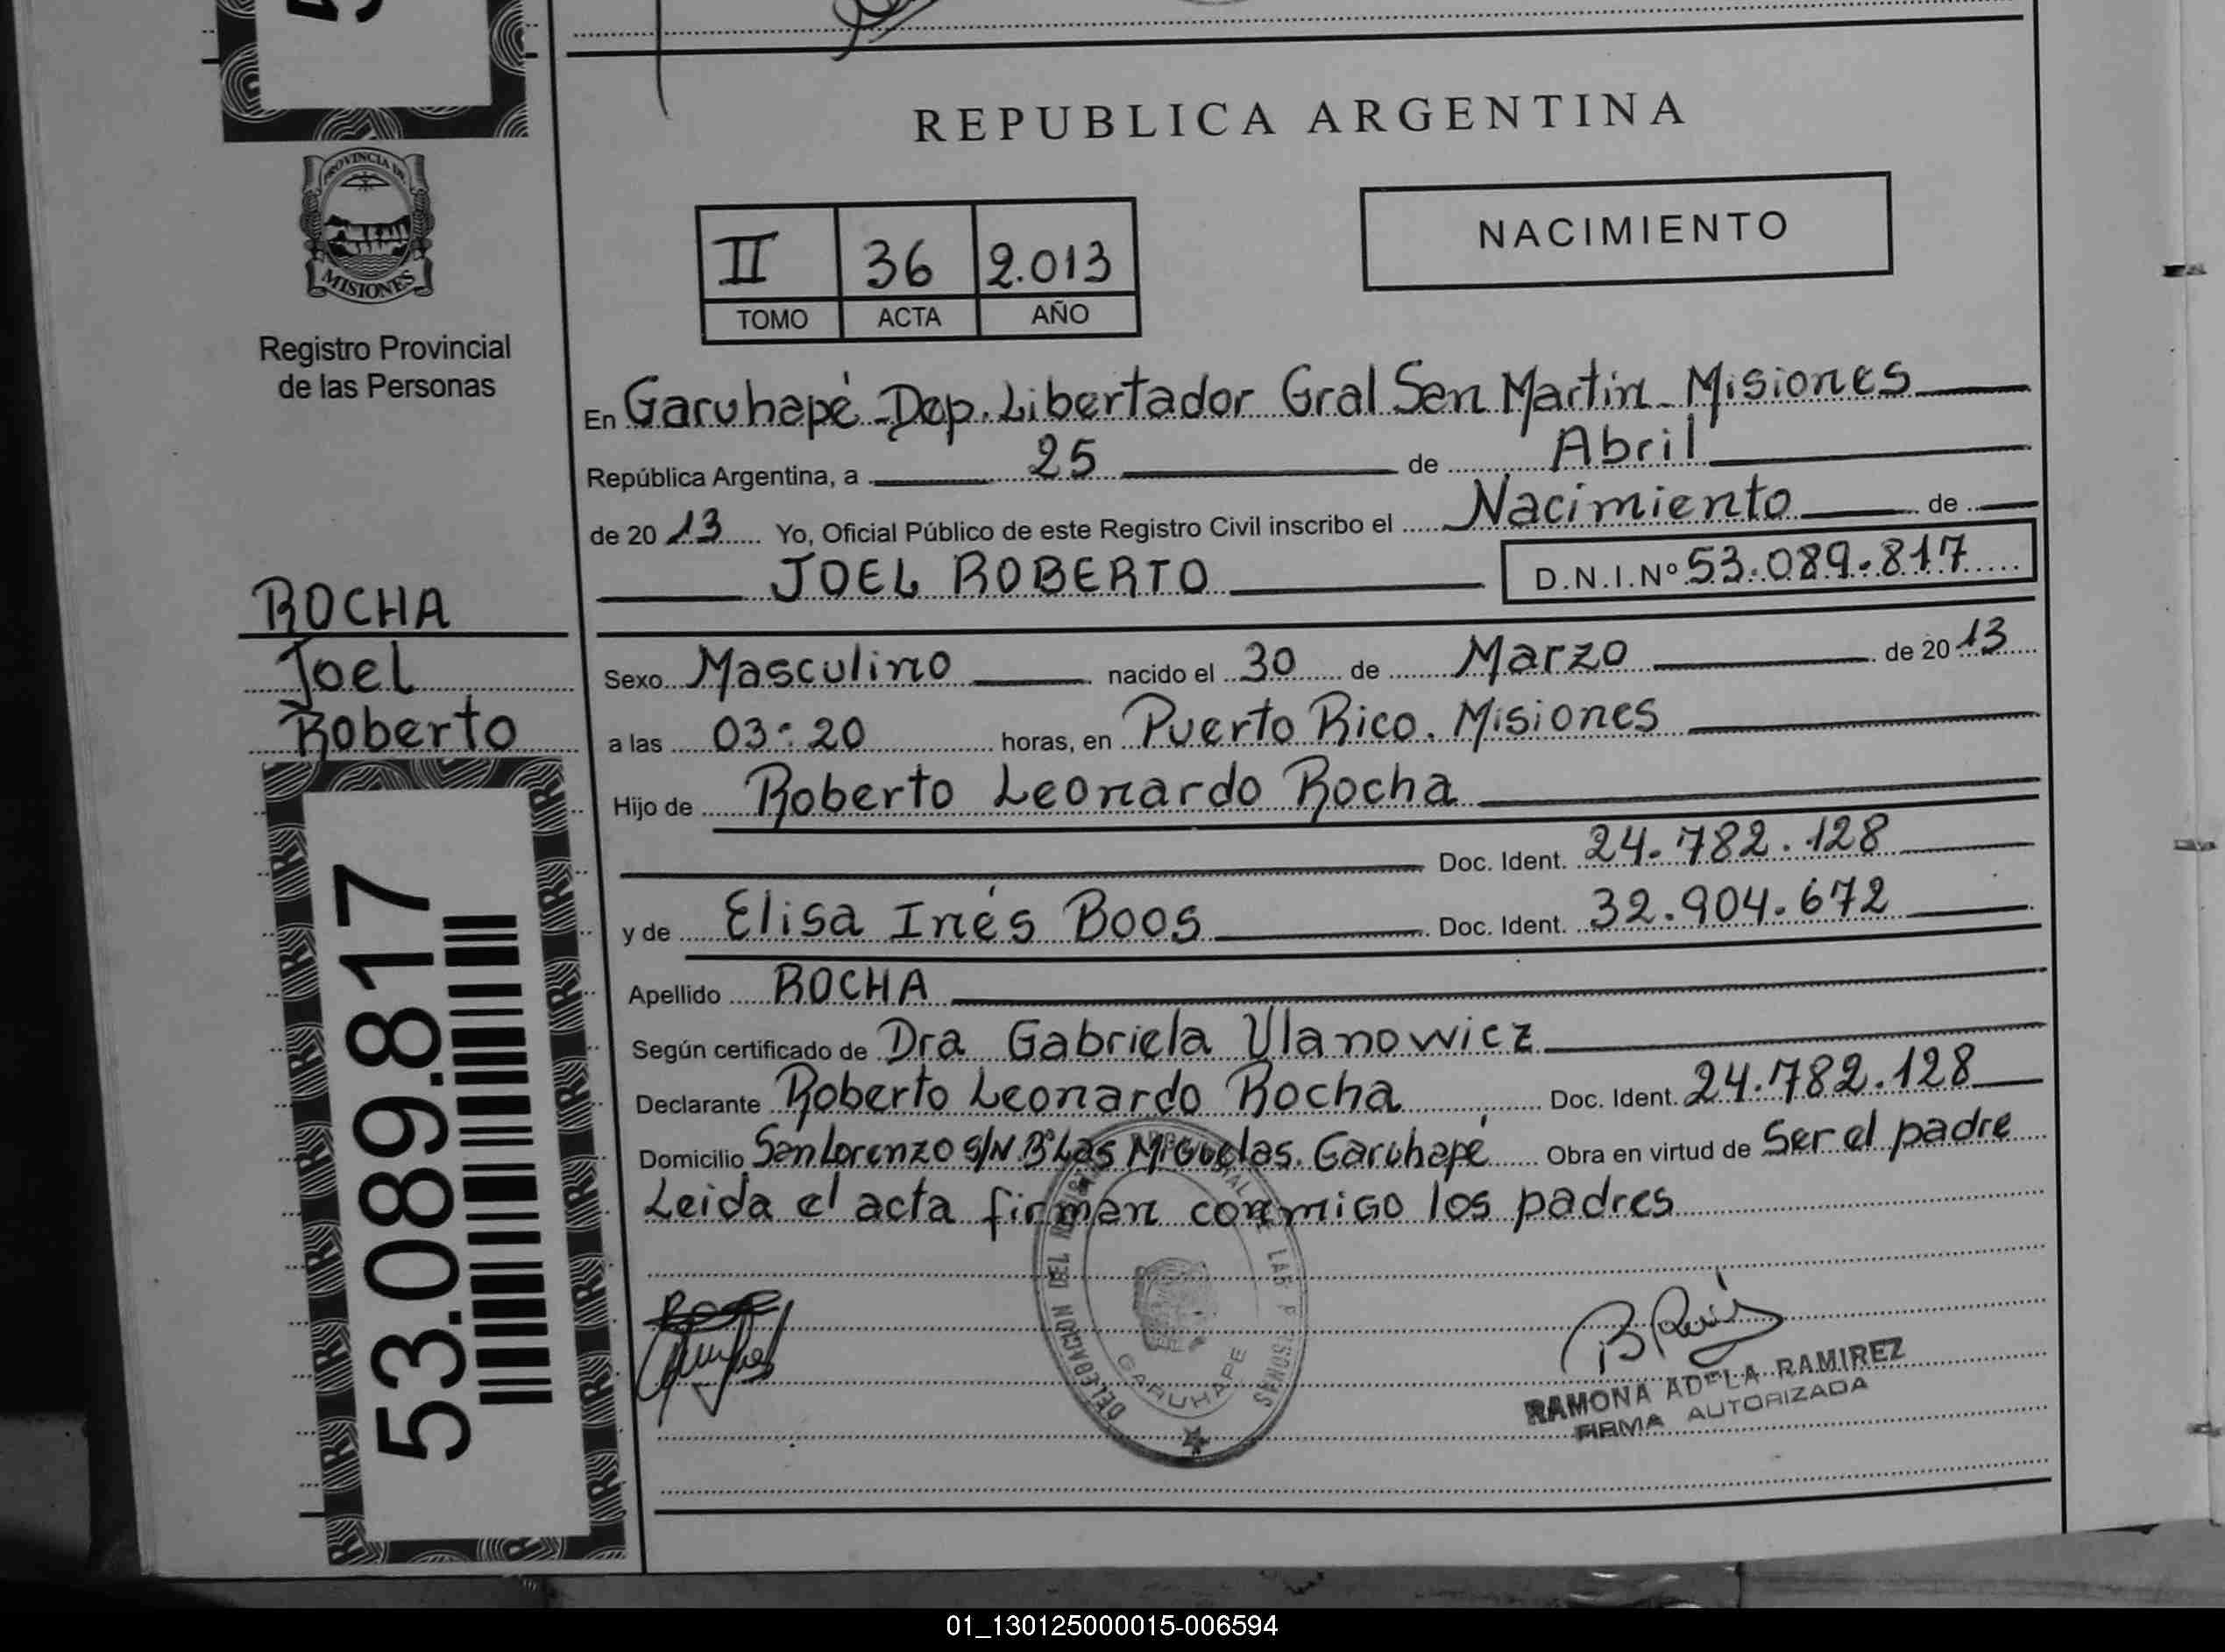 REPUBLICA ARGENTINA
PROVINCIA DE
MISIONES
Registro Provincial
de las Personas
II 36 2.013
TOMO ACTA AÑO
NACIMIENTO
En Garuhapé - Dep. Libertador Gral San Martin - Misiones
República Argentina, a 25 de Abril
de 20 13 Yo, Oficial Público de este Registro Civil inscribo el Nacimiento de
JOEL ROBERTO D.N.I.Nº 53.089.817
ROCHA
Joel
Roberto
Sexo Masculino nacido el 30 de Marzo de 20 13
a las 03:20 horas, en Puerto Rico. Misiones
Hijo de Roberto Leonardo Rocha
Doc. Ident. 24.782.128
y de Elisa Inés Boos Doc. Ident. 32.904.672
Apellido ROCHA
Según certificado de Dra Gabriela Ulanowicz
Declarante Roberto Leonardo Rocha Doc. Ident. 24.782.128
Domicilio San Lorenzo S/N Bº Las Miguelas. Garuhapé Obra en virtud de Ser el padre
Leida el acta firman conmigo los padres
53.089.817
DELEGACION DEL REGISTRO PROVINCIAL DE LAS PERSONAS
GARUHAPE
RAMONA ADELA RAMIREZ
FIRMA AUTORIZADA
01_130125000015-006594